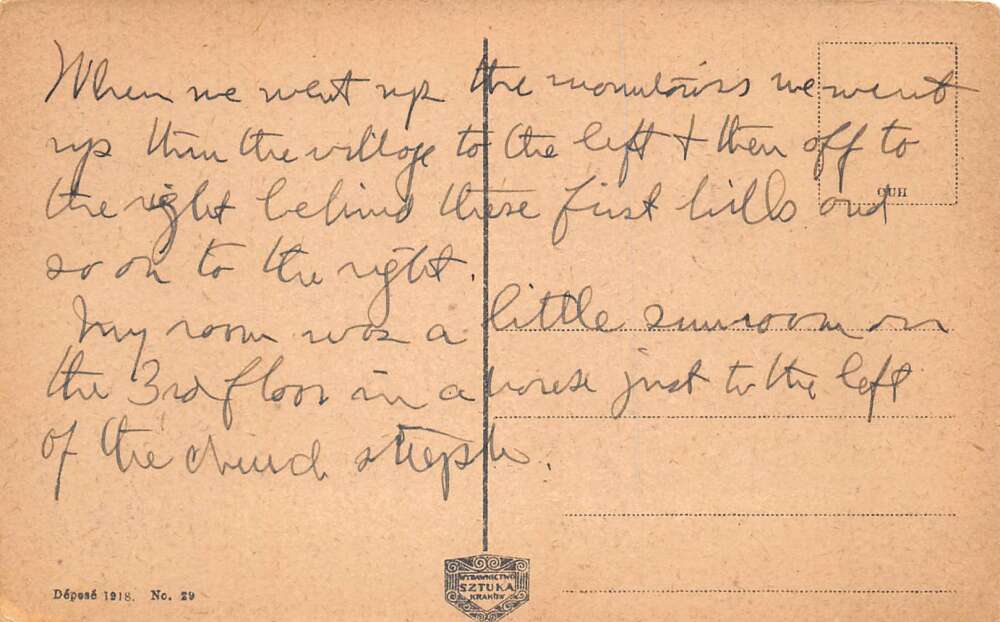 When we went up the mountains we went
up thru the village to the left + then off to
the right behind these first hills and
so on to the right.
My room was a little sunroom on
the 3rd floor in a house just to the left
of the church steeple.
CUH
WYDAWNICTWO
SZTUKA
KRAKÓW
Déposé 1918. No. 29